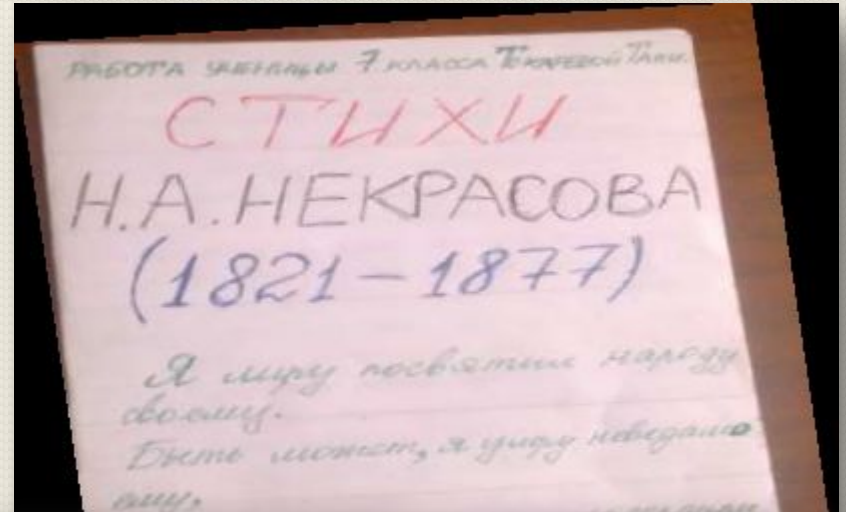 РАБОТА УЧЕНИЦЫ 7 КЛАССА ТОКАРЕВОЙ ТАНИ.
СТИХИ
Н.А.НЕКРАСОВА
(1821-1877)
Я лиру посвятил народу
своему.
Быть может, я умру неведомо
ему,